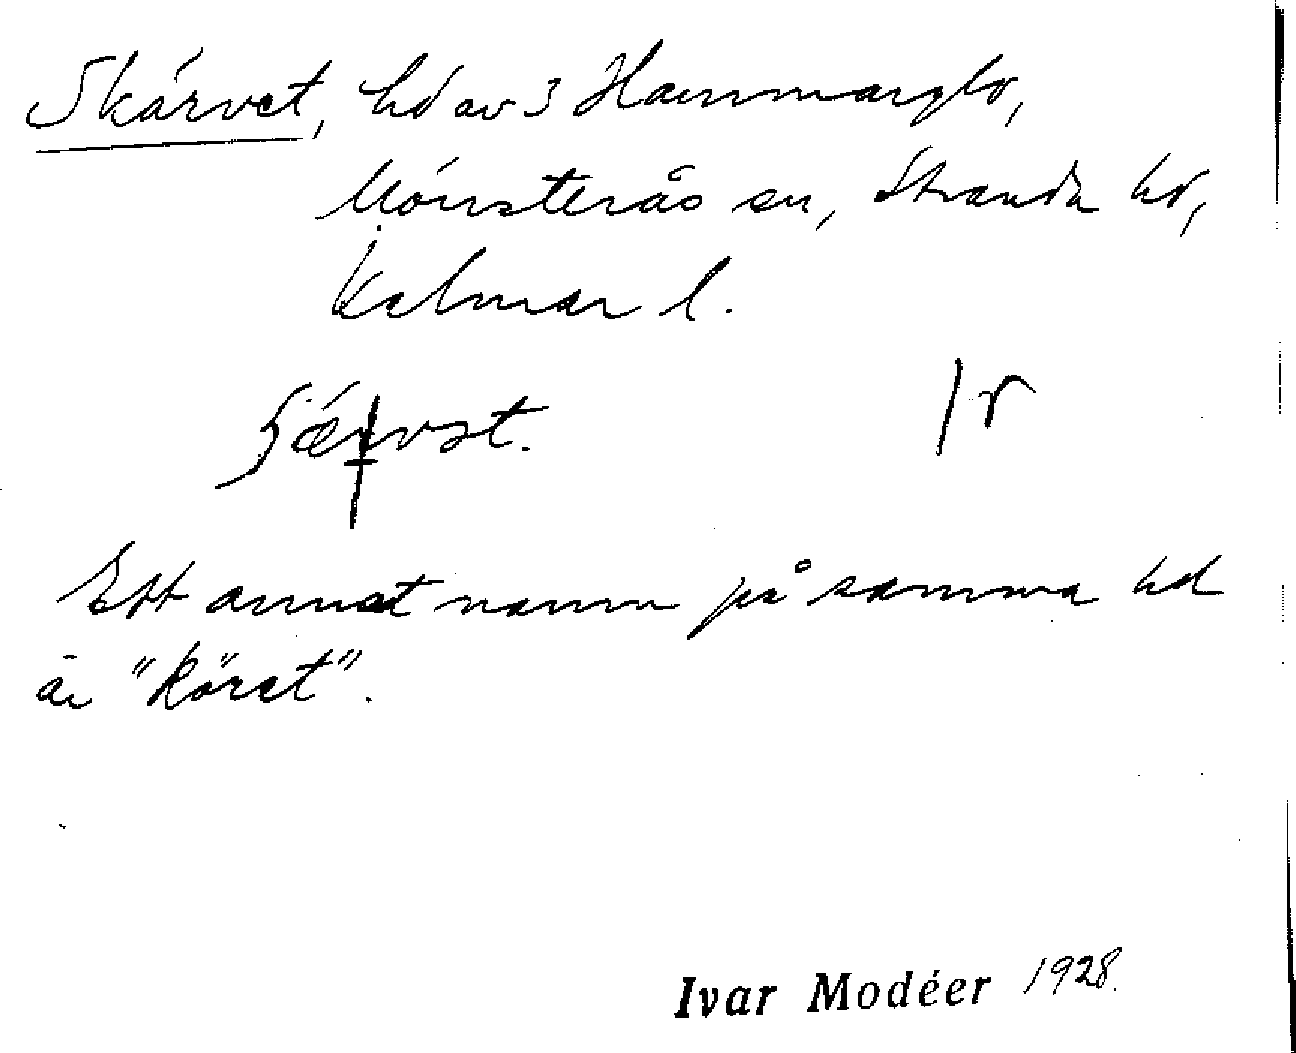 Skärvet, hd av 3 Hammarglo,
Mönsterås sn, Stranda hd,
Kalmar l.
Ett annat namn på samma hd
är "Röret".
Ivar Modéer 1928.